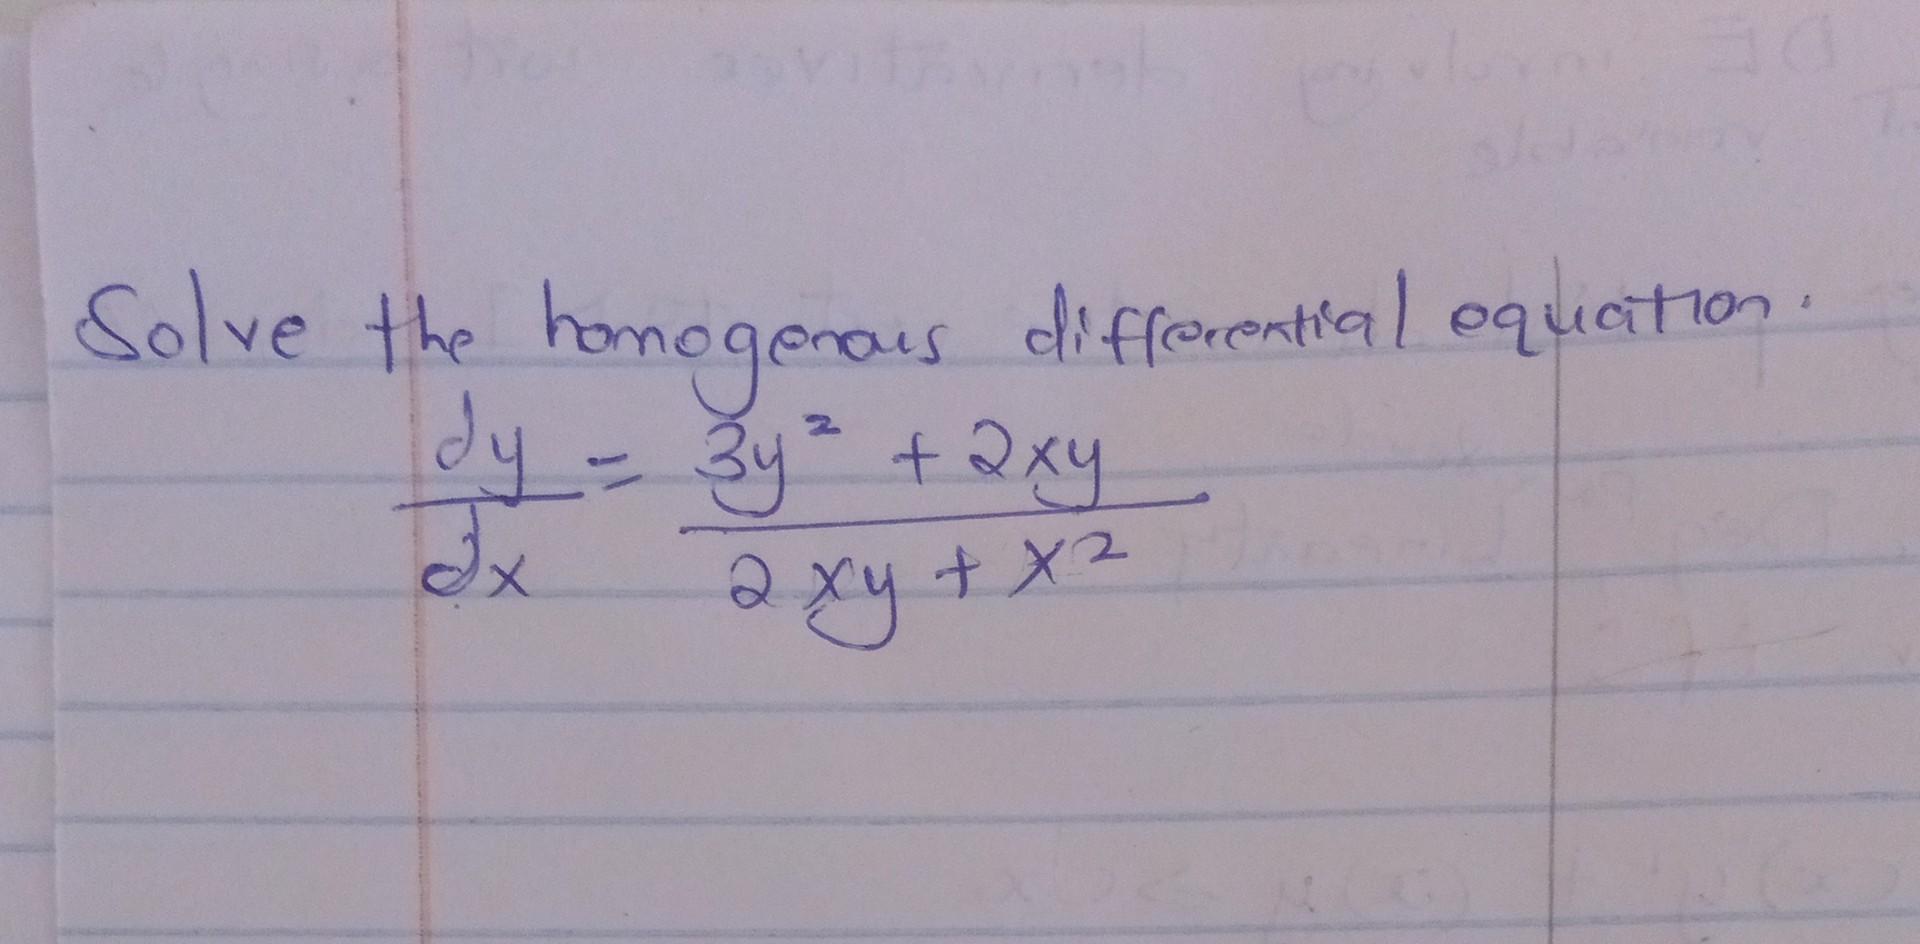 Solve the homogenous differential equation.
dy/dx = (3y² + 2xy)/(2xy + x²)